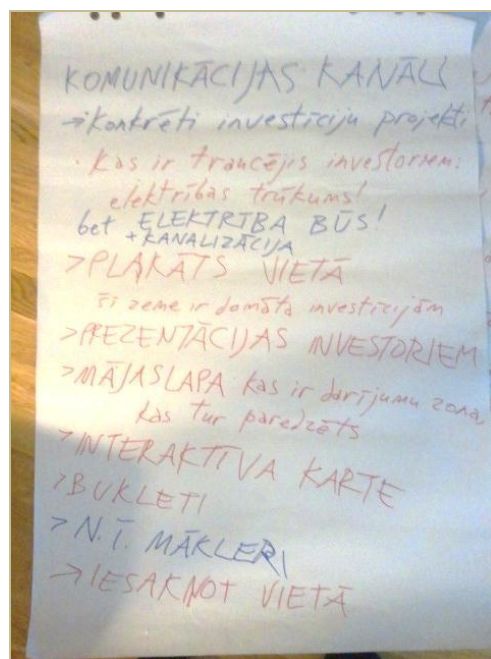 KOMUNIKĀCIJAS KANĀLI
→ Konkrēti investīciju projekti
· Kas ir traucējis investoriem:
elektrības trūkums!
bet ELEKTRĪBA BŪS!
+ KANALIZĀCIJA
> PLAKĀTS VIETĀ
šī zeme ir domāta investīcijām
> PREZENTĀCIJAS INVESTORIEM
> MĀJASLAPA kas ir darījumu zona,
kas tur paredzēts
> INTERAKTĪVA KARTE
> BUKLETI
> N.Ī. MĀKLERI
→ IESAKŅOT VIETĀ